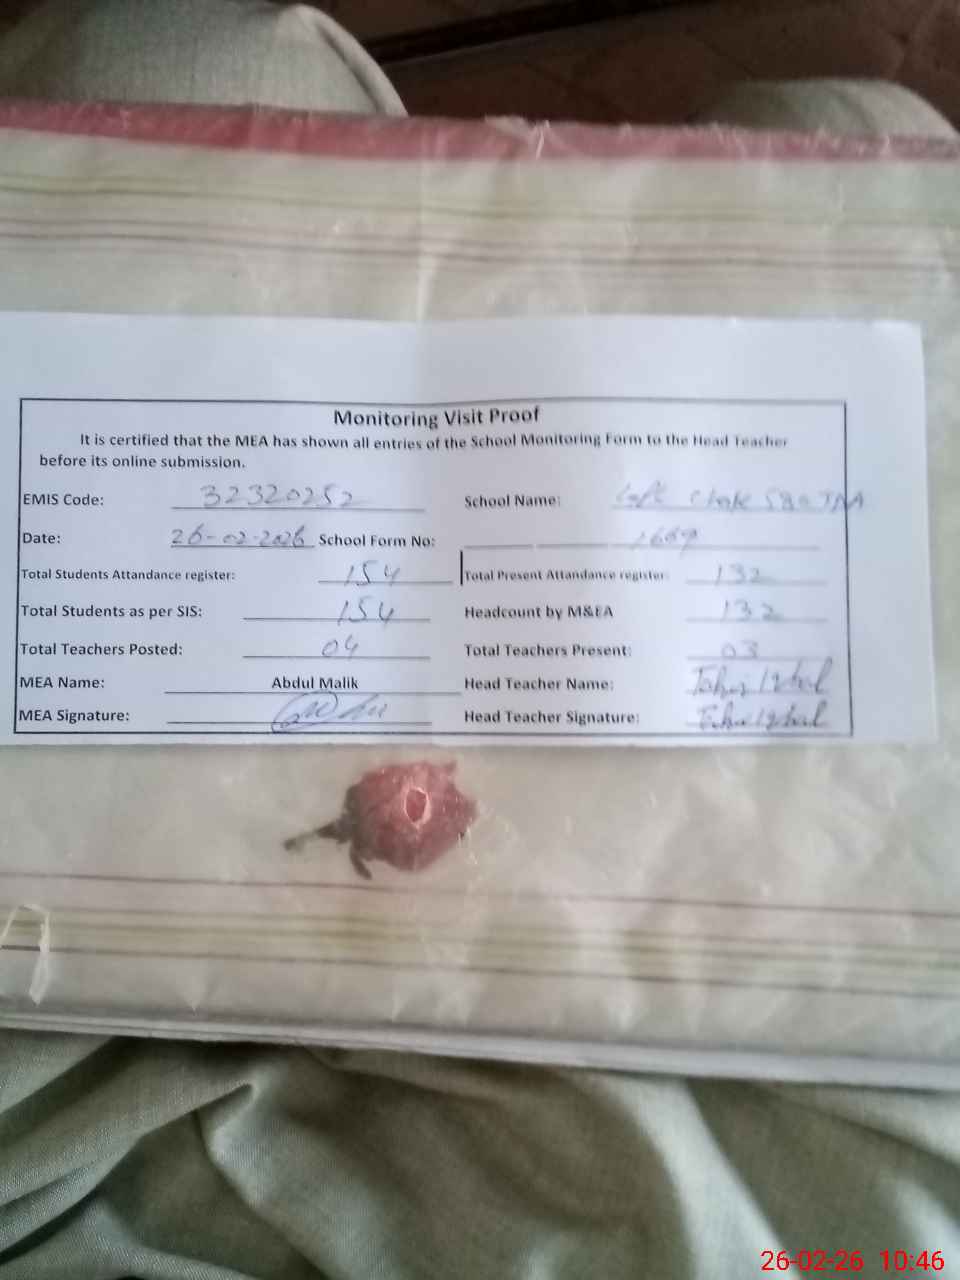 Monitoring Visit Proof
It is certified that the MEA has shown all entries of the School Monitoring Form to the Head Teacher
before its online submission.
EMIS Code: 32320252 School Name:
Date: 26-02-2026 School Form No:
Total Students Attandance register: 154 Total Present Attandance register: 132
Total Students as per SIS: 154 Headcount by M&EA 132
Total Teachers Posted: 04 Total Teachers Present: 03
MEA Name: Abdul Malik Head Teacher Name: Tahir Iqbal
MEA Signature: Head Teacher Signature: Tahir Iqbal
26-02-26 10:46